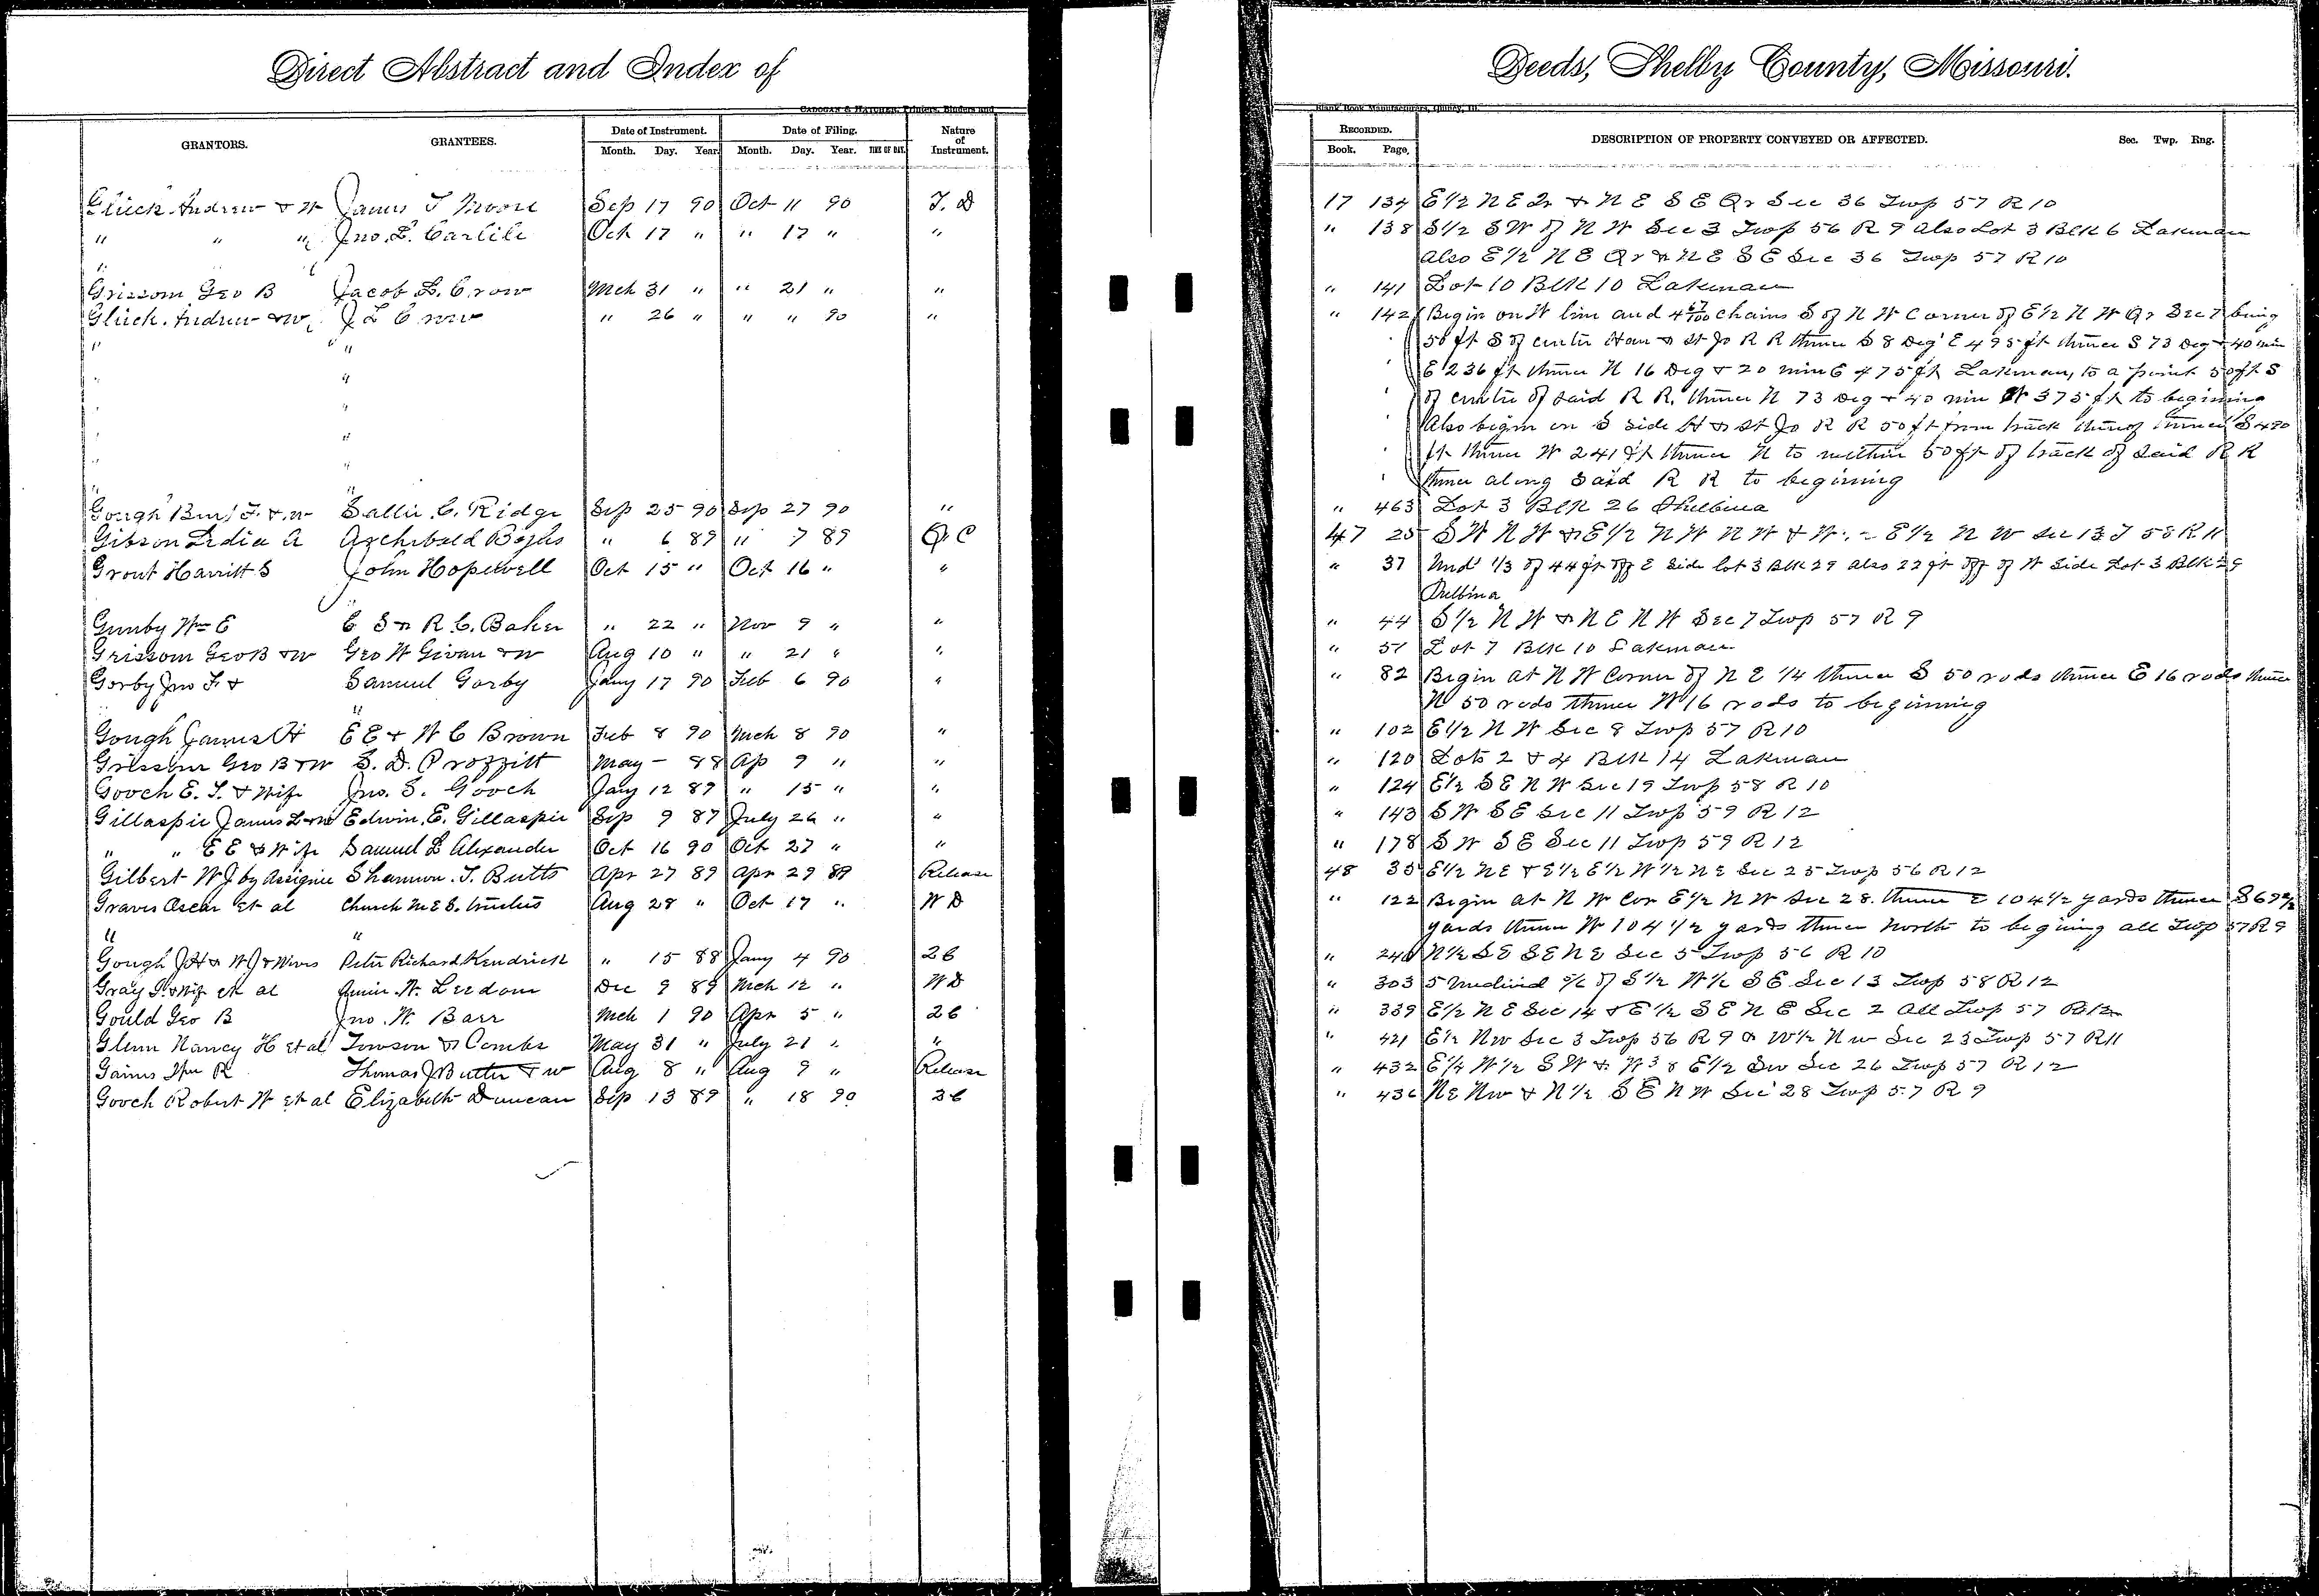 Direct Abstract and Index of
Deeds, Shelby County, Missouri.
CADOGAN & HATCHER, Printers, Binders and
Blank Book Manufacturers, Quincy, Ill.
GRANTORS. GRANTEES. Date of Instrument. Date of Filing. Nature of Instrument.
Month. Day. Year. Month. Day. Year. TIME OF DAY.
RECORDED. DESCRIPTION OF PROPERTY CONVEYED OR AFFECTED. Sec. Twp. Rng.
Book. Page.
Glück Andrew & W James T Moore Sep 17 90 Oct 11 90 T. D 17 134 E 1/2 N E Qr & N E S E Qr Sec 36 Twp 57 R 10
" " " Jno. L. Carlile Oct 17 " " 17 " " " 138 S 1/2 S W of N W Sec 3 Twp 56 R 9 also Lot 3 Blk 6 Lakenan
" " also E 1/2 N E Qr & N E S E Sec 36 Twp 57 R 10
Grissom Geo B Jacob L. Crow Mch 31 " " 21 " " " 141 Lot 10 Blk 10 Lakenan
Glück Andrew & W J L Crow " 26 " " " 90 " " 142 Begin on W line and 4 67/100 chains S of N W Corner of E 1/2 N W Qr Sec 7 being
" " 50 ft S of center Han & St Jo R R thence S 8 Deg E 495 ft thence S 73 Deg & 40 min
" " E 236 ft thence N 16 Deg & 20 min E 475 ft Lakenan, to a point 50 ft S
" " of centre of said R R. thence N 73 Deg & 40 min W 375 ft to beginning
" " Also begin on S side H & St Jo R R 50 ft from track thereof thence S 420
" " ft thence W 241 ft thence N to within 50 ft of track of said R R
" " thence along said R R to beginning
Gough Benj F. & w Sallie C. Ridge Sep 25 90 Sep 27 90 " " 463 Lot 3 Blk 26 Shelbina
Gibson Lidia A Archibald " 6 89 " 7 89 Q. C 47 25 S W N W & E 1/2 N W N W & W E 1/2 N W Sec 13 T 58 R 11
Grout Harriet S John Hopewell Oct 15 " Oct 16 " " " 37 Und 1/3 of 44 ft off E side lot 3 Blk 29 also 22 ft off of W side Lot 3 Blk 29
Shelbina
Gunby Wm E C S & R. C. Baker " 22 " Nov 9 " " " 44 S 1/2 N W & N E N W Sec 7 Twp 57 R 9
Grissom Geo B & W Geo W Givan & W Aug 10 " " 21 " " " 51 Lot 7 Blk 10 Lakenan
Gorby Jno F. & Samuel Gorby Jany 17 90 Feb 6 90 " " 82 Begin at N W Corner of N E 1/4 thence S 50 rods thence E 16 rods thence
" N 50 rods thence W 16 rods to beginning
Gough James H E E & W C Brown Feb 8 90 Mch 8 90 " " 102 E 1/2 N W Sec 8 Twp 57 R 10
Grissom Geo B & W S. D. Proffitt May - 88 Ap 9 " " " 120 Lots 2 & 4 Blk 14 Lakenan
Gooch E. T. & Wife Jno. S. Gooch Jany 12 89 " 15 " " " 124 E 1/2 S E N W Sec 19 Twp 58 R 10
Gillaspie James L & W Edwin. E. Gillaspie Sep 9 87 July 26 " " " 143 S W S E Sec 11 Twp 59 R 12
" " E E & Wife Samuel L Alexander Oct 16 90 Oct 27 " " " 178 S W S E Sec 11 Twp 59 R 12
Gilbert W J by Assignee Shannon. T. Butts Apr 27 89 Apr 29 89 Release 48 35 E 1/2 N E & E 1/2 E 1/2 W 1/2 N E Sec 25 Twp 56 R 12
Graves Oscar et al Church M E S. trustees Aug 28 " Oct 17 " W D " 122 Begin at N W Cor E 1/2 N W Sec 28. thence E 104 1/2 yards thence S
" " yards thence W 104 1/2 yards thence North to begining all Twp 57 R 9
Gough J H & W J & Wives Peter Richard Kendrick " 15 88 Jany 4 90 " 240 N 1/2 S E S E N E Sec 5 Twp 56 R 10
Gray & Wife et al W. Leedom Dec 9 89 Mch 12 " W D " 303 of S 1/2 W 1/2 S E Sec 13 Twp 58 R 12
Gould Geo B Jno. W. Barr Mch 1 90 Apr 5 " " 339 E 1/2 N E Sec 14 & E 1/2 S E N E Sec 2 All Twp 57 R 12
Glenn Nancy H et al Towson & Combs May 31 " July 21 " " " 421 E 1/2 N W Sec 3 Twp 56 R 9 & W 1/2 N W Sec 23 Twp 57 R 11
Gaines Wm R Thomas J Butler & w Aug 8 " Aug 9 " Release " 432 E 1/2 W 1/2 S W & W 3/8 E 1/2 S W Sec 26 Twp 57 R 12
Gooch Robert W et al Elizabeth Duncan Sep 13 89 " 18 90 " 436 N E N W & N 1/2 S E N W Sec 28 Twp 57 R 9